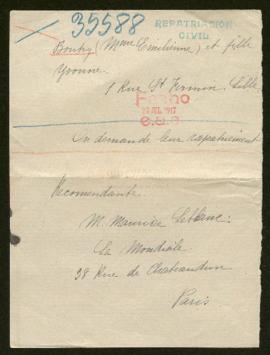 35588
REPATRIACION
CIVIL
Boutry (Mme Emilienne) et fille
Yvonne.
1 Rue St Firmin, Lille
Fecho
1917
On demande leur rapatriement
Recomendante.
M. Maurice Leblanc.
La Mondiale
38 Rue de Chateaudun
Paris